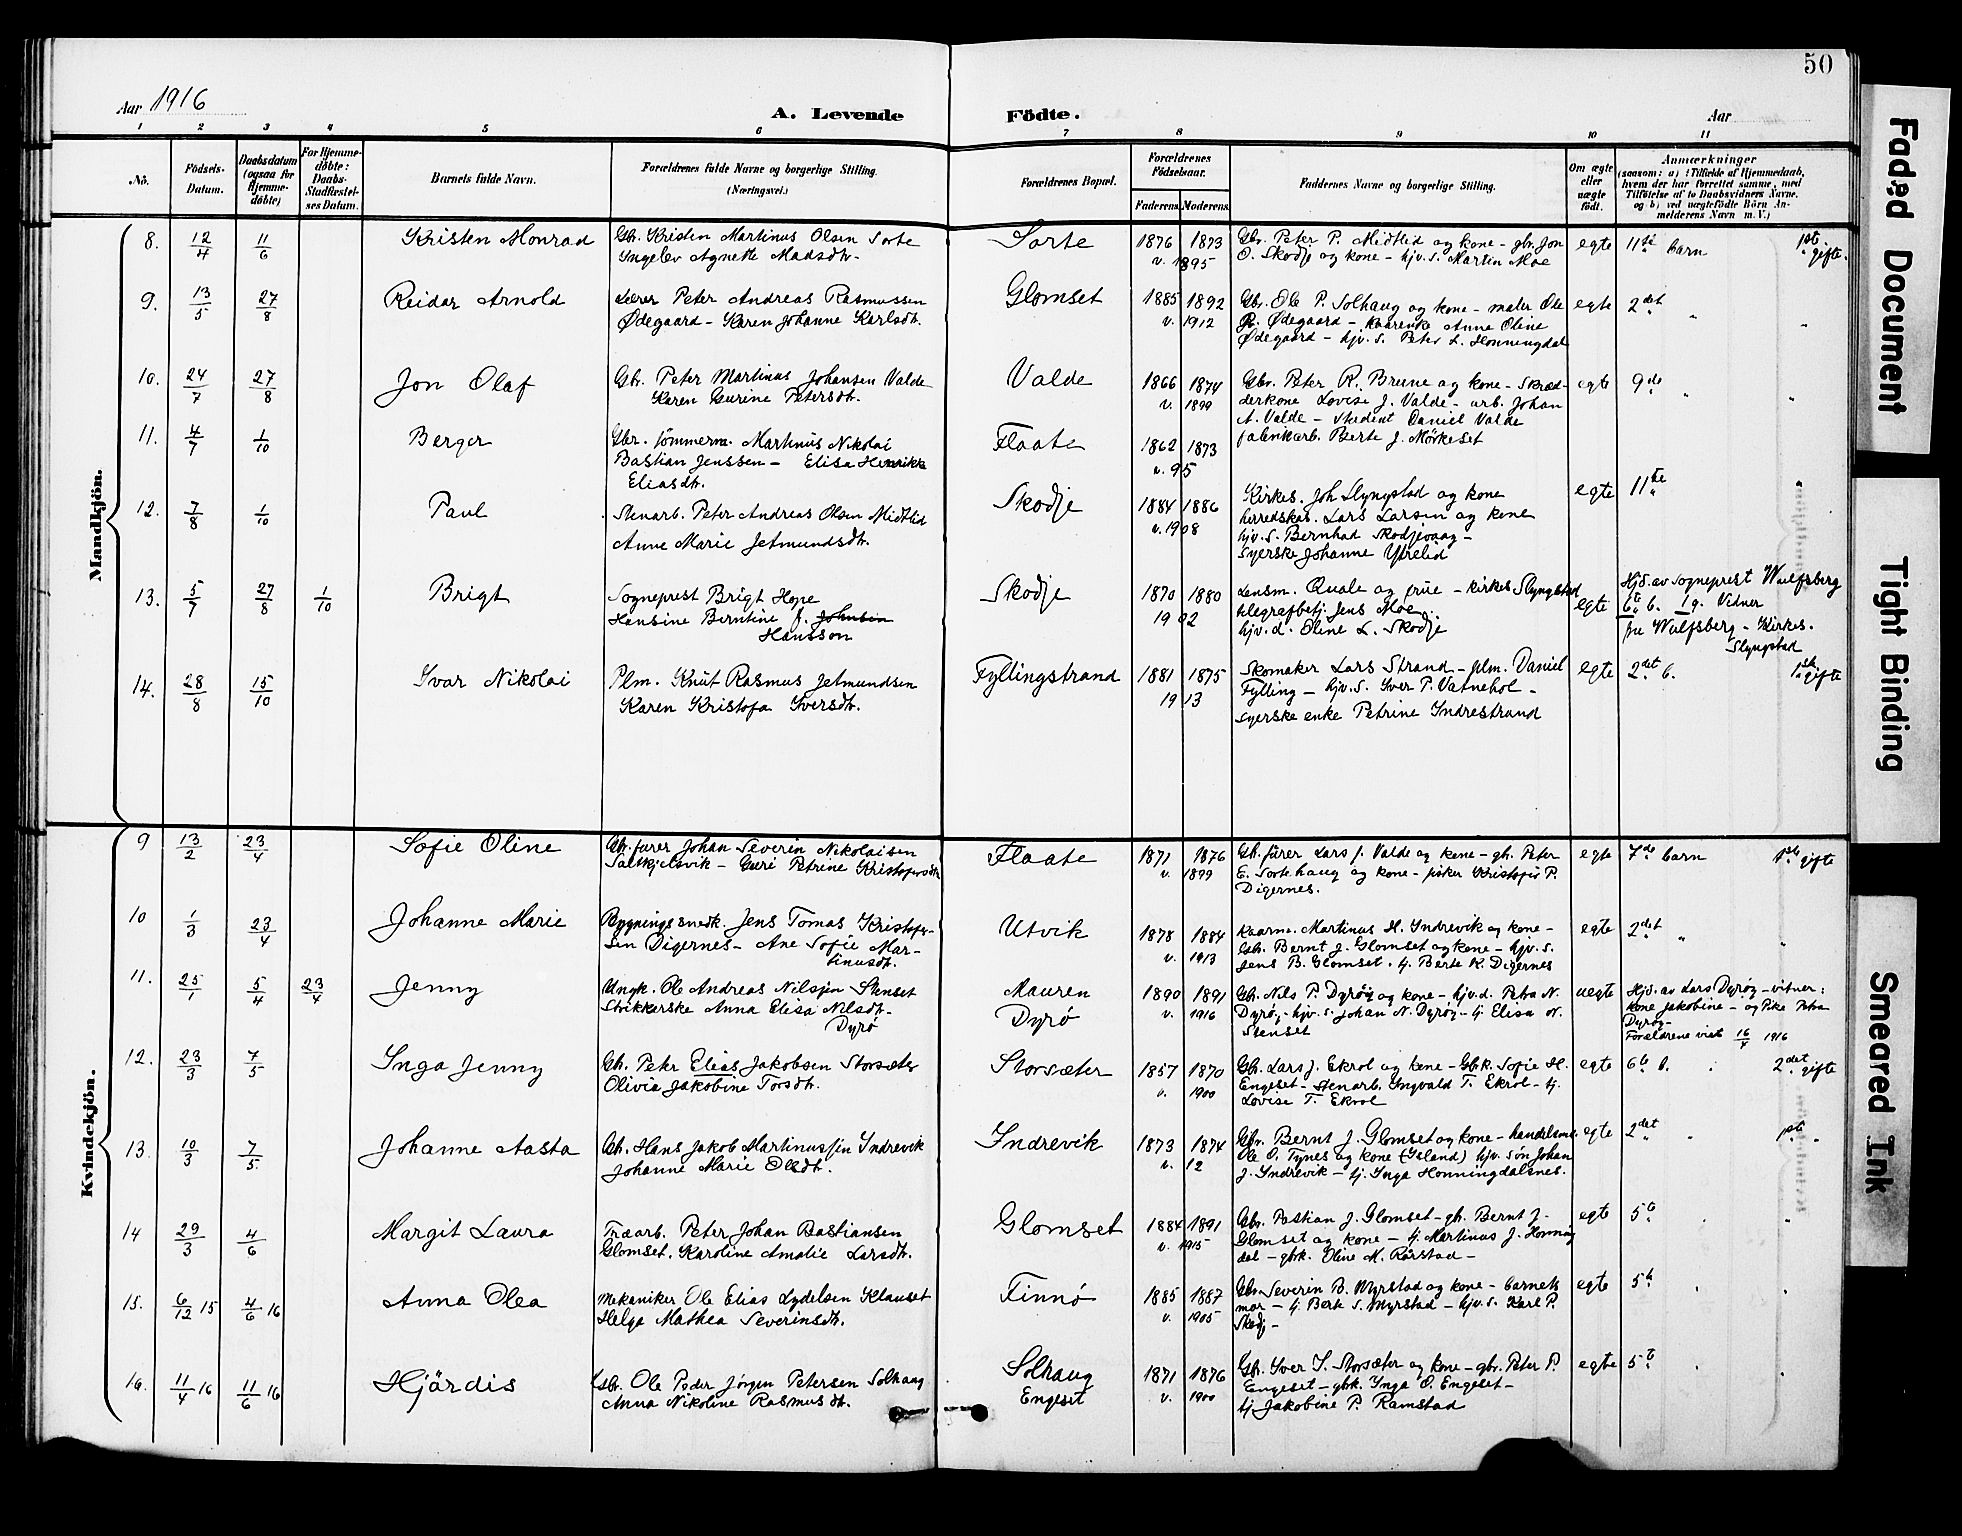 50
Aar 1916
A. Levende Födte.
Aar
1 2 3 4 5 6 7 8 9 10 11
No.
Födsels-Datum.
Daabsdatum (ogsaa for Hjemme-döbte)
For Hjemme-döbte: Daabs-Stadfæstel-ses Datum.
Barnets fulde Navn.
Forældrenes fulde Navne og borgerlige Stilling.
(Næringsvei.)
Forældrenes Bopæl.
Forældrenes Födselsaar.
Faderens. Moderens.
Faddernes Navne og borgerlige Stilling.
Om ægte eller uægte födt.
Anmærkninger
(saasom: a) i Tilfælde af Hjemmedaab,
hvem der har forrettet samme, med
Tilföielse af to Daabsvidners Navne.
og b) ved uægtefödte Börn An-
melderens Navn m. V.)
Mandkjön.
8. 12/4 11/6 Kristen Monrad
Gbr. Kristen Martinus Olsen Sorte
Ingelev Agnette Madsdtr.
Sorte 1876 1873
v. 1895
Gbr. Peter P. Midtlid og kone – gbr. Jon
O. Skodje og kone – hjv. s. Martin Moe
egte 11te barn 1ste gifte.
9. 13/5 27/8 Reidar Arnold
Lærer Peter Andreas Rasmussen
Ødegaard – Karen Johanne Karlsdtr.
Glomset 1885 1892
v. 1912
Gbr. Ole P. Solhaug og kone – maler Ole
R. Ødegaard – kaarenke Anne Oline
Ødegaard – hjv. s. Peter L. Honningdal
egte 2det " "
10. 24/7 27/8 Jon Olaf
Gbr. Peter Martinus Johansen Valde
Karen Gurine Petersdtr.
Valde 1866 1874
v. 1899
Gbr. Peter R. Brune og kone – Skræd-
derkone Lovise J. Valde – arb. Johan
A. Valde – student Daniel Valde
fabrikarb. Berte J. Mørkeset
egte 9de " "
11. 4/7 1/10 Berger
Gbr. tömmerm. Martinus Nikolai
Bastian Jenssen – Elisa Henrikke
Eliasdtr.
Flaate 1862 1873
v. 95
12. 7/8 1/10 Paul
Stenarb. Peter Andreas Olsen Midtlid
Anne Marie Jetmundsdtr.
Skodje 1884 1886
v. 1908
Kirkes. Joh Slyngstad og kone
herredskas. Lars Larsen og kone
hjv. s. Bernhad Skodjevaag –
syerske Johanne Ytrelid
egte 11te "
13. 5/7 27/8 1/10 Brigt
Sogneprest Brigt Hope
Hensine Berntine f. Johnsen
Hansson
Skodje 1870 1880
1902
Lensm. Quale og frue – kirkes Slyngstad
telegrafbetj. Jens Moe.
hjv. d. Oline L. Skodje
egte
Hjd. av sogneprest Wulfsberg
6te b. 1 g. Vidner
fru Wulfsberg – Kirkes.
Slyngstad
14. 28/8 15/10 Ivar Nikolai
Plm. Knut Rasmus Jetmundsen
Karen Kristofa Iversdtr.
Fyllingstrand 1881 1875
1913
Skomaker Lars Strand – plm. Daniel
Fylling – hjv. s. Iver P. Vatnehol –
syerske enke Petrine Indrestrand
egte 2det b. 1ste gifte
Kvindekjön.
9 13/2 23/4 Sofie Oline
Gbr. fører Johan Severin Nikolaisen
Saltkjelsvik – Guri Petrine Kristofersdtr
Flaate 1871 1876
v. 1899
Gbr. fürer Lars J. Valde og kone – gbr. Peter
E. Sortehaug og kone – fisker Kristofer P.
Digernes.
egte 7de barn 1ste gifte
10 1/3 23/4 Johanne Marie
Bygningssnedk. Jens Tomas Kristofer-
sen Digernes – Ane Sofie Mar-
tinusdtr.
Utvik 1878 1884
v. 1913
Kaarm. Martinus H. Indrevik og kone –
Gbr. Bernt J. Glomset og kone – hjv. s.
Jens B. Glomset. tj. Berte K. Digernes
egte 2det " "
11. 25/1 5/4 23/4 Jenny
Ungk. Ole Andreas Nilssen Stenset
Strikkerske Anna Elisa Nilsdtr.
Dyrö
Mauren
Dyrö
1890 1891
v. 1916
Gbr. Nils P. Dyröy og kone – hjv. d. Petra N.
Dyröy – hjv. s. Johan N. Dyröy – tj Elisa N.
Stenset
uegte
Hjd. av Lars Dyröy – vitner:
Kone Jakobine – og Pike Petra
Dyröy –
Forældrene viet 16/4 1916
12. 23/3 7/5 Inga Jenny
Gbr. Peter Elias Jakobsen Storsæter
Olivia Jakobine Torsdtr.
Storsæter 1857 1870
v. 1900
Gbr. Lars J. Ekrol og kone – Gbk. Sofie H.
Engeset – stenarb. Ingvald T. Ekrol – tj.
Lovise T. Ekrol
egte 6te b. 2det gifte
13. 10/3 7/5 Johanne Aasta
Gbr. Hans Jakob Martinussen Indrevik
Johanne Marie Olsdtr.
Indrevik 1873 1874
v. 12
Gbr. Bernt J. Glomset og kone – handelsm.
Ole O. Tynes og kone (Island) hjv. søn Johan
J. Indrevik – tj. Inga Honningdalsnes.
egte 2det " 1ste "
14 29/3 4/6 Margit Laura
Træarb. Peter Johan Bastiansen
Glomset. Karoline Amalie Larsdtr.
Glomset 1884 1891
v. 1915
Gbr. Bastian J. Glomset – gbr. Bernt J.
Glomset og kone – tj. Martinus J. Honning
dal – gbk. Oline M. Rørstad –
egte 5te
15. 6/12 15 4/6 16 Anna Olea
Mekaniker Ole Elias Lydelsen Klauset
Helga Mathea Severinsdtr.
Finnö 1885 1887
v. 1905
Gbr. Severin B. Myrstad og kone – barnets
mor – tj. Berte S. Myrstad – hjv. s. Karl P.
Skodj –
egte 5te
16. 11/4 16 11/6 16 Hjördis
Gbr. Ole Peder Jørgen Petersen Solhaug
Anna Nikoline Rasmusdtr.
Solhaug
Engeset
1871 1876
v. 1900
Gbr. Iver I. Storsæter og kone – gbr. Peter P.
Engeset – gbk. Inga O. Engeset –
tj Jakobine P. Ramstad
egte 5te
Faded Document
Tight Binding
Smeared Ink